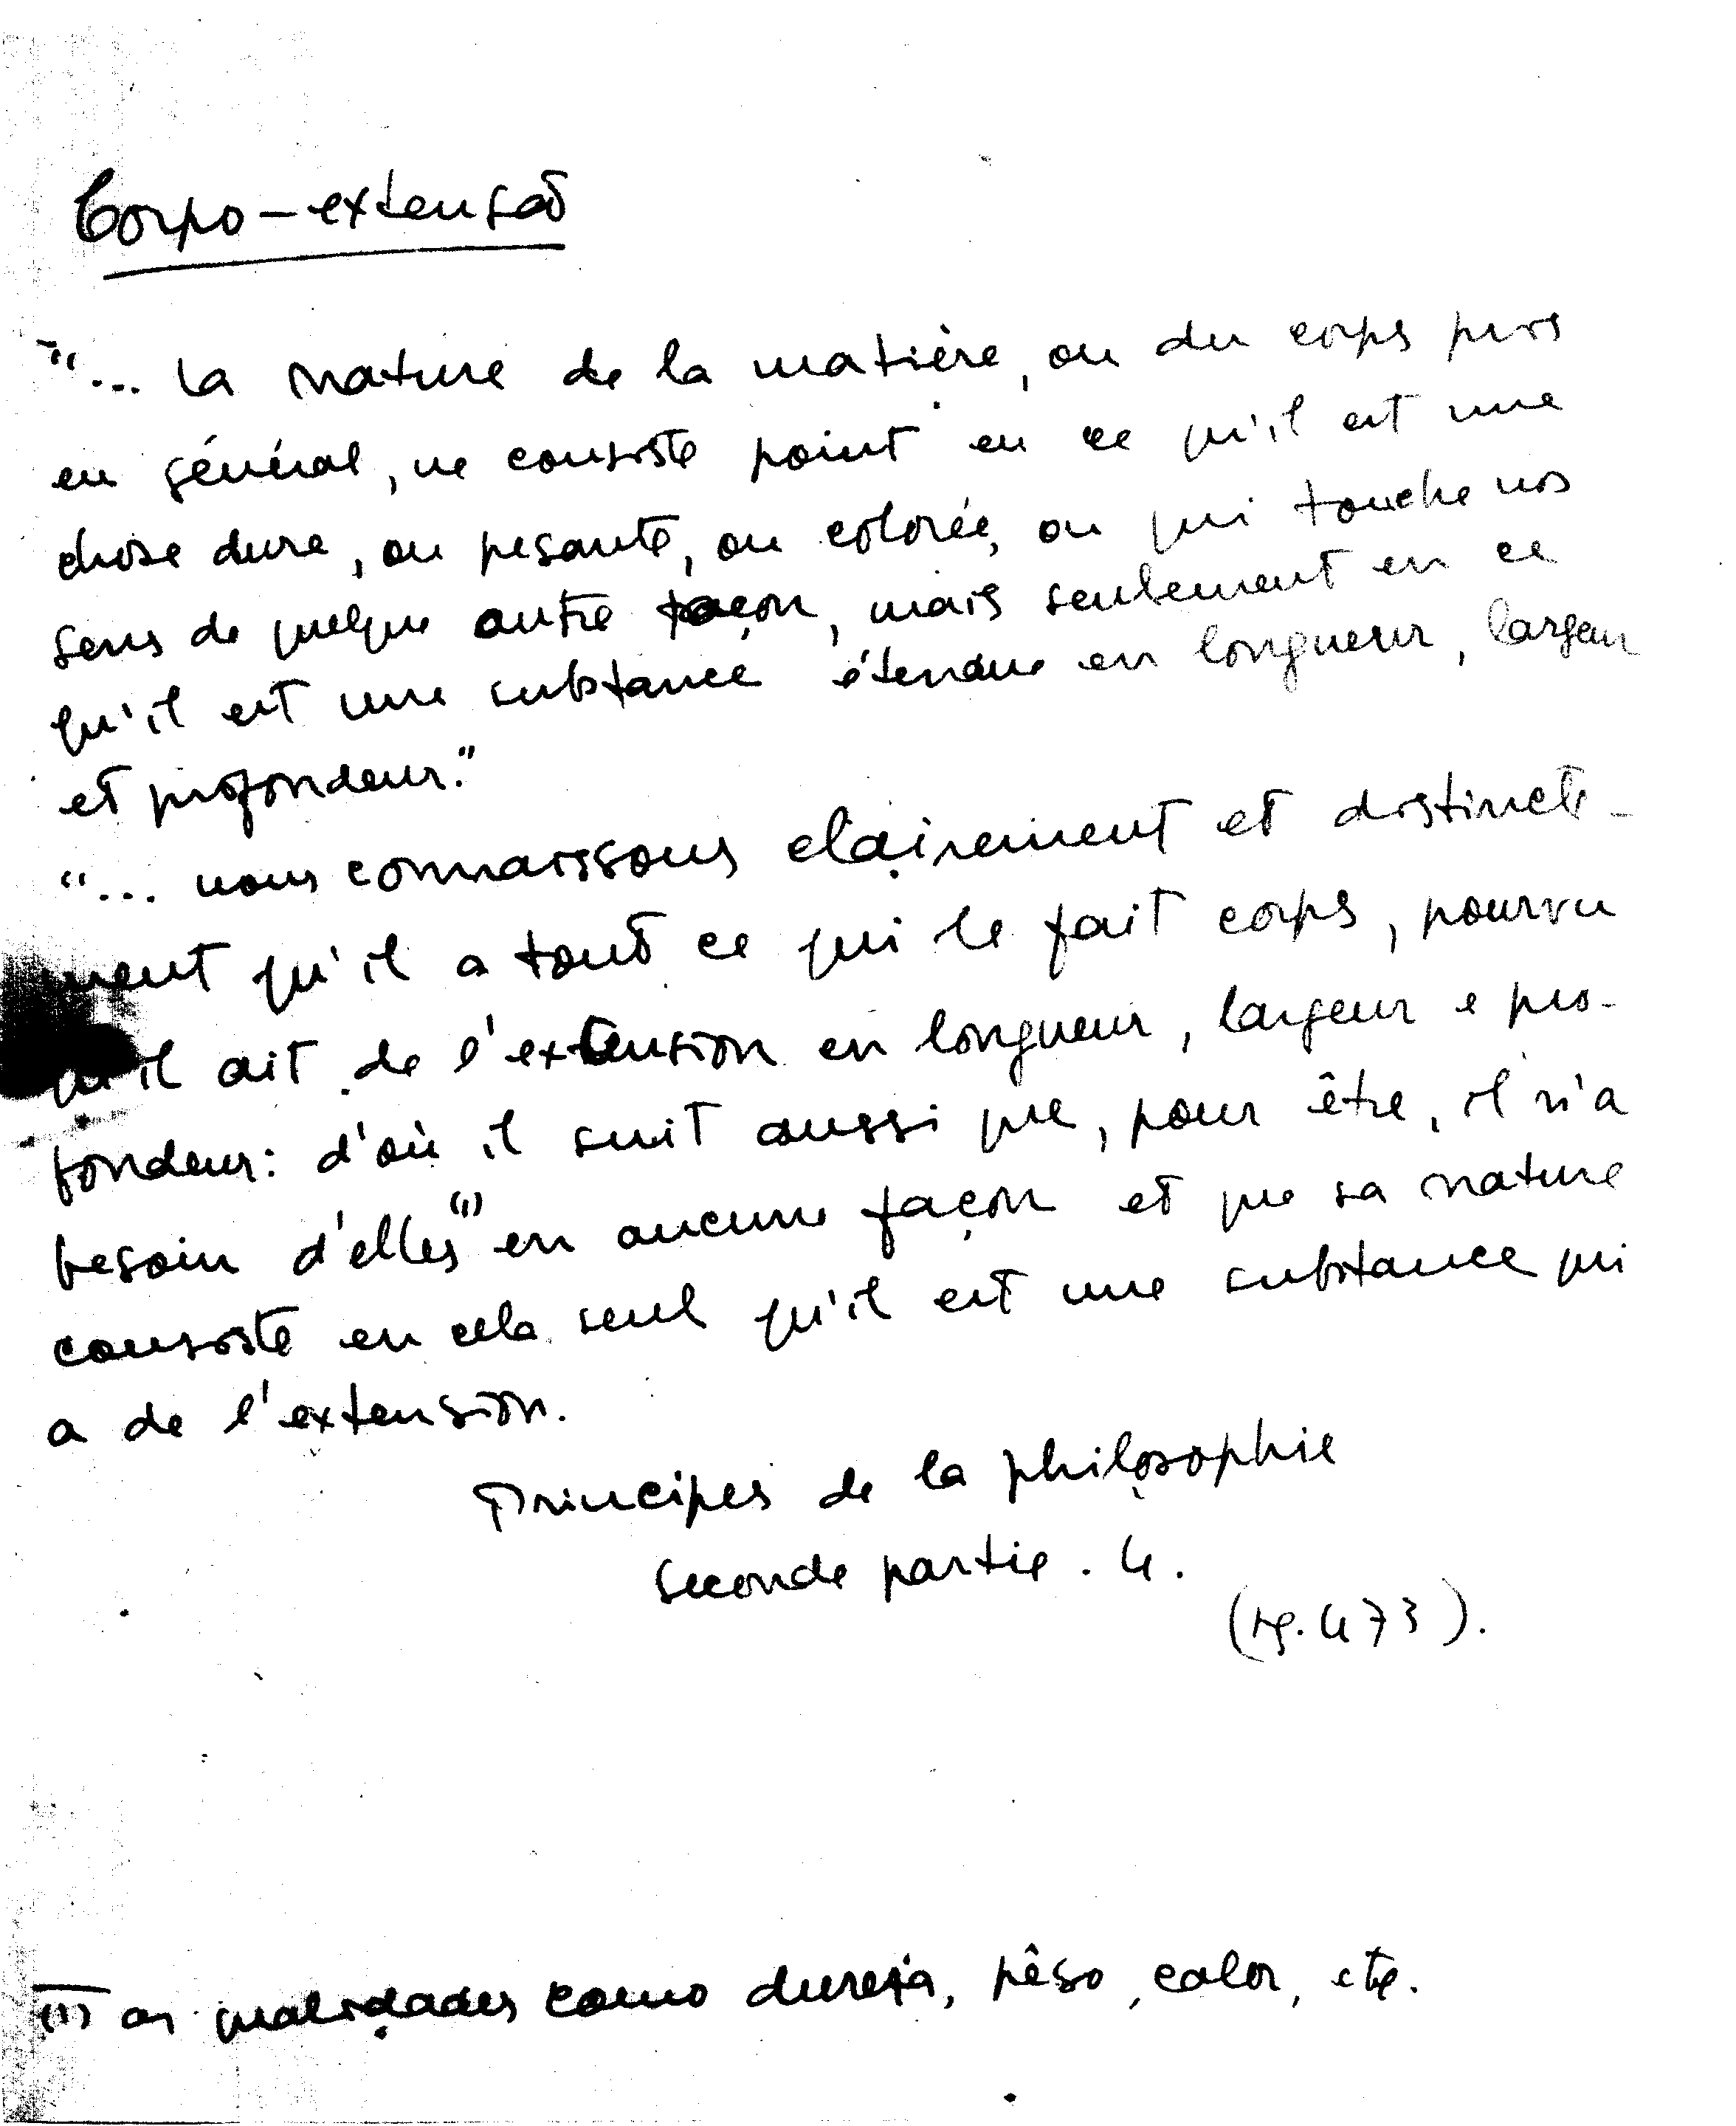 Corpo-extensão
"... la nature de la matière, ou du corps pris
en général, ne consiste point en ce qu'il est une
chose dure, ou pesante, ou colorée, ou qui touche nos
sens de quelque autre façon, mais seulement en ce
qu'il est une substance étendue en longueur, largeur
et profondeur."
"... nous connaissons clairement et distincte-
ment qu'il a tout ce qui le fait corps, pourvu
qu'il ait de l'extension en longueur, largeur e pro-
fondeur: d'où il suit aussi que, pour être, il n'a
besoin d'elles" (1) en aucune façon et que sa nature
consiste en cela seul qu'il est une substance qui
a de l'extension.
Principes de la philosophie
Seconde partie. 4.
(pg. 473).
(1) as qualidades como dureza, pêso, calor, etc.